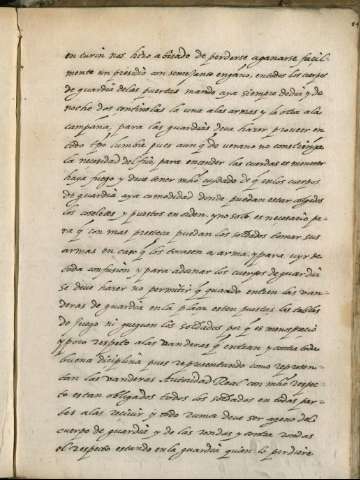 en curia nos hizo abisado de perderse aganarse facil
mente un presidio con semejante engaño, en todos los cuerpos
de guardia de las puertas mando aya siempre de dia y de
noche dos centinelas la una a las armas y la otra a la
campaña, para las guardias deve haver proveer en
todo tpo lumbre pues aun q de verano no constriñe
la necesidad del frio para encender las cuerdas es menester
haya fuego y deve tener mho cuidado de q en los cuerpos
de guardia aya comodidad donde puedan estar colgados
los coseletes y puestos en orden, y no solo es necesario pa
ra q con mas presteza puedan los soldados tomar sus
armas en caso q los toquen a arma, y para uyr de
toda confusion y para adornar los cuerpos de guardia
se deve haver no permitir q quando entren las van
deras de guardia en la plaza esten puestas las tablas
de juego ni jueguen los soldados por q es menosprecio
y poco respeto a las vanderas q entran y contra toda
buena disciplina pues representando como represen
tan las vanderas Autoridad Real con mho respe
to estan obligados todos los soldados en todas par
tes a las recivir, y todo rumor deve ser ageno del
cuerpo de guardia y de las rondas y contra rondas
el respecto estando en la guardia quien lo perdiere